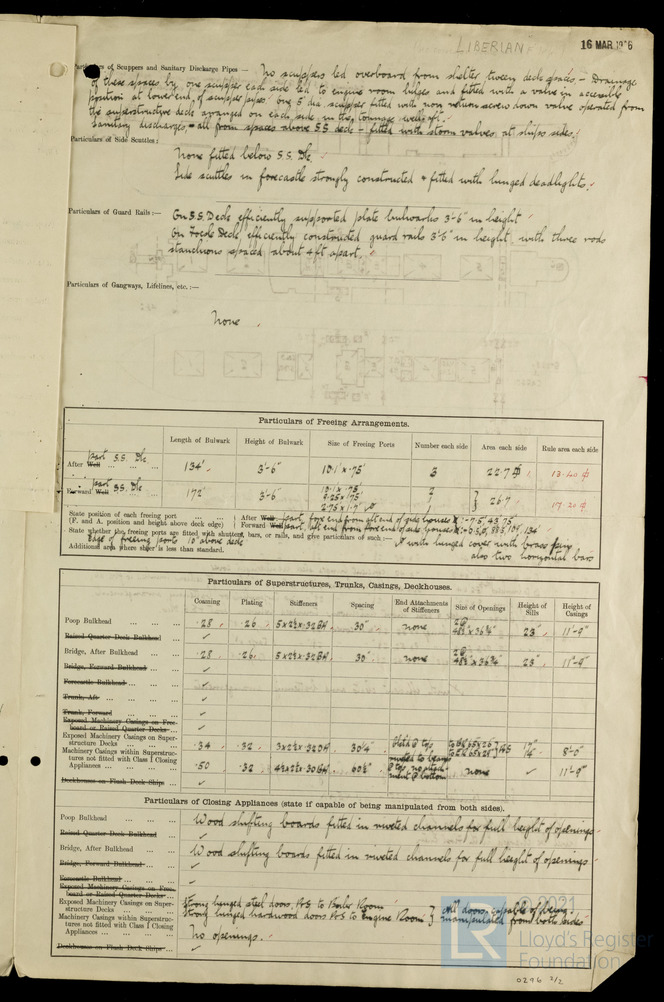 LIBERIAN
16 MAR 1926
Particulars of Scuppers and Sanitary Discharge Pipes — No scuppers led overboard from shelter tween deck spaces – Drainage
of these spaces by one scupper each side led to engine room bilges and fitted with a valve in accessible
position at lower end of scupper pipe. One 5" dia scupper fitted with non return screw down valve operated from
the superstructure deck arranged on each side in the tonnage well aft.
Sanitary discharges – all from spaces above S.S. deck – fitted with storm valves at ships sides.
Particulars of Side Scuttles:
None fitted below S.S. Dk.
Side scuttles in forecastle strongly constructed & fitted with hinged deadlights.
Particulars of Guard Rails:— On S.S. Deck efficiently supported plate bulwarks 3'-6" in height
On Focsle Deck, efficiently constructed guard rails 3'6" in height with three rods
stanchions spaced about 4 ft apart.
Particulars of Gangways, Lifelines, etc.:—
None
Particulars of Freeing Arrangements.
Length of Bulwark Height of Bulwark Size of Freeing Ports Number each side Area each side Rule area each side
After Well part S.S. Dk 134' 3'-6" 10.1 x .75' 3 22.7 13.40
Forward Well part S.S. Dk 172' 3'-6" 10.1 x .75' 9.25 x .75' 2.75 x 1.7' 26.7 17.20
State position of each freeing port ... ...
(F. and A. position and height above deck edge)
After Well part, fore end from aft end of side houses
Forward Well part, aft end from fore end of side houses
State whether the freeing ports are fitted with shutters, bars, or rails, and give particulars of such:— with hinged cover with brass pins
Edge of freeing ports 10" above deck also two horizontal bars
Additional area where sheer is less than standard.
Particulars of Superstructures, Trunks, Casings, Deckhouses.
Coaming Plating Stiffeners Spacing End Attachments of Stiffeners Size of Openings Height of Sills Height of Casings
Poop Bulkhead ... ... ... .28 .26 5 x 2½ x .32 BA 30" none 48½" x 36¾" 23" 11'-9"
Raised Quarter Deck Bulkhead ✓
Bridge, After Bulkhead ... ... .28 .26 5 x 2½ x .32 BA 30" none 48½" x 36¾" 23" 11'-9"
Bridge, Forward Bulkhead ✓
Forecastle Bulkhead ✓
Trunk, Aft ✓
Trunk, Forward ✓
Exposed Machinery Casings on Freeboard or Raised Quarter Decks ✓
Exposed Machinery Casings on Superstructure Decks ... .34 .32 3 x 2½ x .32 BA 30¼" 8'-0"
Machinery Casings within Superstructures not fitted with Class I Closing Appliances ... .50 .32 60½" riveted to beams @ top, no attachment @ bottom none ✓ 11'-9"
Deckhouses on Flush Deck Ships ✓
Particulars of Closing Appliances (state if capable of being manipulated from both sides).
Poop Bulkhead ... ... Wood shifting boards fitted in riveted channels for full height of openings
Raised Quarter Deck Bulkhead ✓
Bridge, After Bulkhead ... Wood shifting boards fitted in riveted channels for full height of openings
Bridge, Forward Bulkhead ✓
Forecastle Bulkhead ✓
Exposed Machinery Casings on Freeboard or Raised Quarter Decks ✓
Exposed Machinery Casings on Superstructure Decks ... Strong hinged steel doors, P&S to Boiler Room
Strong hinged hardwood doors P&S to Engine Room } All doors capable of being manipulated from both sides
Machinery Casings within Superstructures not fitted with Class I Closing Appliances ... No openings.
Deckhouses on Flush Deck Ships ✓
© 2021
LR
Lloyd's Register
Foundation
0296 2/2